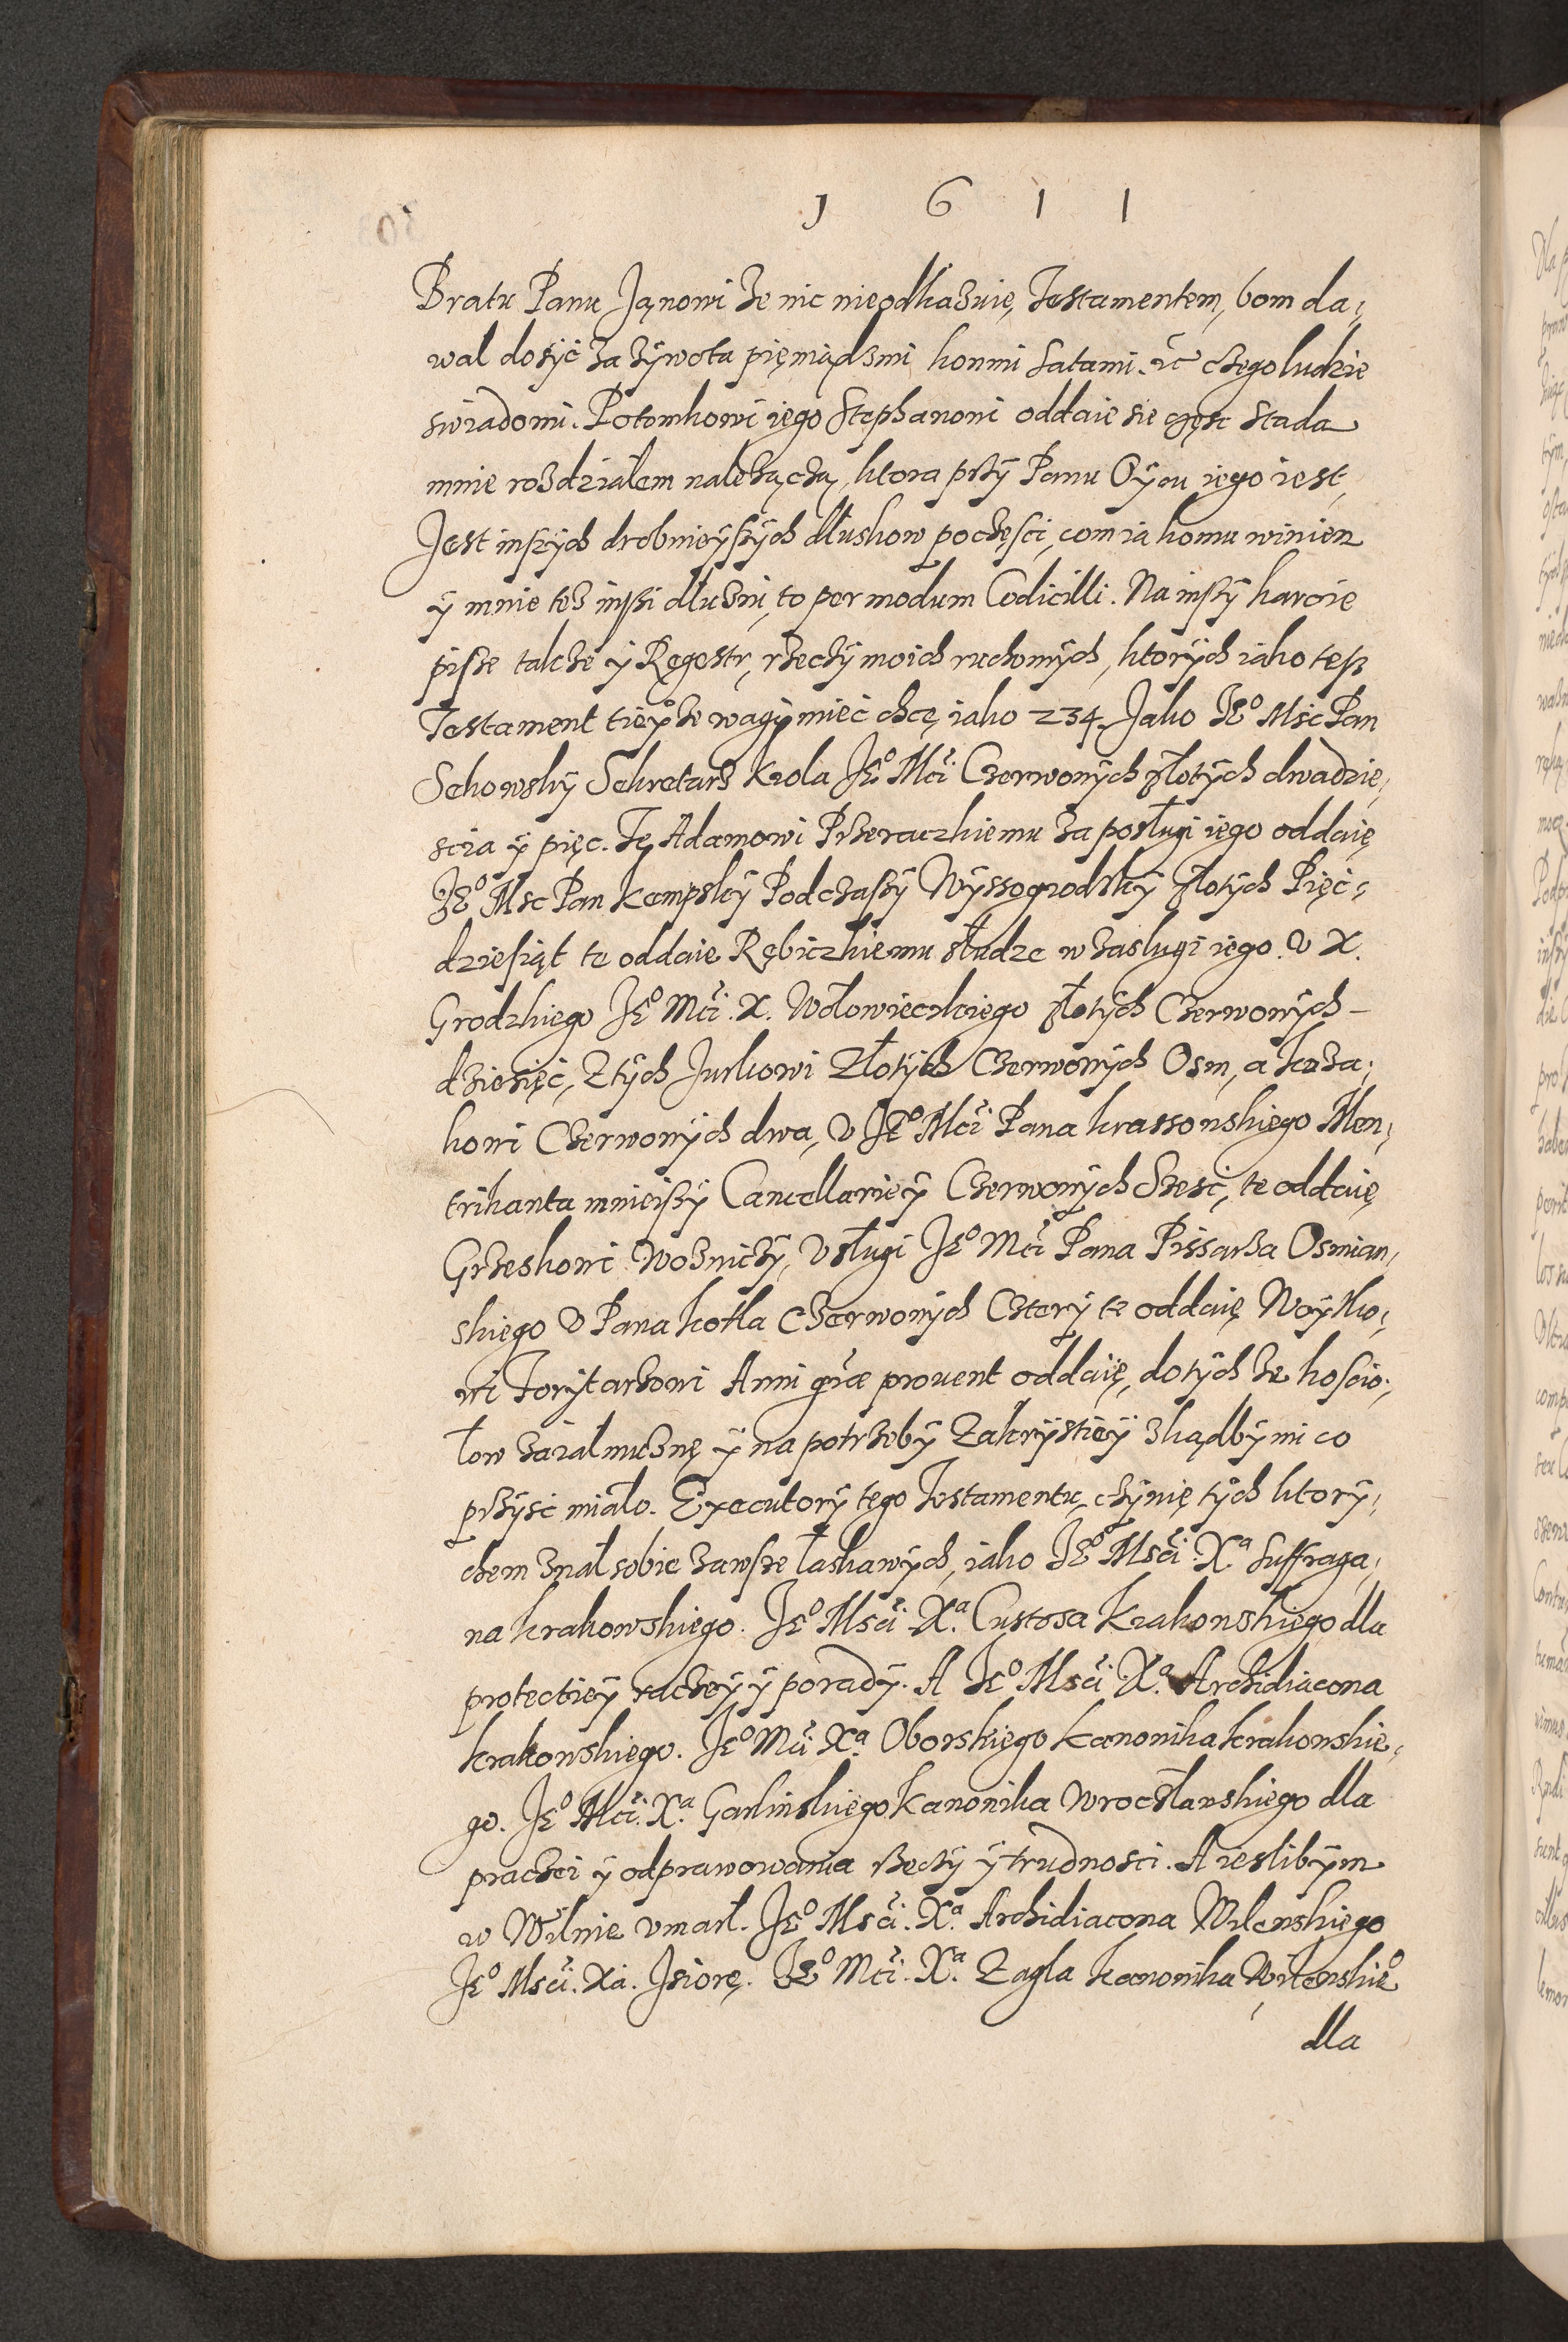 1 6 1 1
Bratu Panu Janowi że nic nieodkazuię, Testamentem, bom da,
wal dosÿć za żÿwota pięniądzmi konmi satami. ic czego ludzie
swiadomi. Potomkowi iego Stephanowi oddaie sie częsc stada
mnie rozdzialem należączą, ktora przÿ Panu Oÿcu iego iest,
Jest inszÿch drobnieÿszÿch dłuskow poczęsci, com ia komu winien
ÿ mnie tez inszi dłuzni, to per modum Codicilli. Na inszÿ karcie
pisze takze ÿ Ręgestr, rzeczÿ moich ruchomÿch, ktorÿch iako tesz
Testament tieÿże wagÿ mieć chcę, iako 234. Jako Jeº Msc Pan
Sekowskÿ Sekretarz Krola Jeº Mci Czerwonÿch złotÿch dwadzie,
scia ÿ pięc. Te Adamowi Przeraczkiemu za posługi iego oddaię
Jeº Msc Pan Kempskÿ Podczaszÿ Wÿssogrodskÿ złotÿch Pięć,
dziesiąt te oddaie Rębiczkiemu słudze w zaslugi iego. V X.
Grodzkiego Jeº Mci. X. Wołowieczkiego złotÿch Czerwonÿch –
dziesięć, Z tÿch Jurkowi Złotÿch Czerwonÿch Osm, a koza,
kowi Czerwonÿch dwa, V Jeº Mci Pana Krassowskiego Men,
trikanta mnieiszÿ Cancellarieÿ Czerwonÿch Szesć, te oddaię
Grzeskowi Wozniczÿ, V sługi Jeº Mci Pana Pissarza Osmian,
skiego V Pana Kotła Czerwonÿch Czterÿ te oddaię Woÿtko,
wi Forÿtarzowi Anni grae prouent oddaię, do tÿch że koscio,
łow za ialmuznę ÿ na potrzebÿ Zakrÿstieÿ zkądbÿ mi co
przÿsć mialo. Executorÿ tego Testamentu, czÿnię tÿch ktorÿ,
chem znał sobie zawsze łaskawÿch, iako Jeº Msci. Xª Suffraga,
na Krakowskiego. Jeº Msci Xª. Custosa Krakowskiego dla
protectieÿ raczeÿ ÿ poradÿ. A Jeº Msci. Xª. Archidiacona
Krakowskiego. Jeº Mci Xª. Oborskięgo Kanonika Krakowskie,
go. Jeº Mci. Xª. Garlinskiego Kanonika Wrocsławskiego dla
praczei ÿ odprawowania rzeczÿ ÿ trudnosci. A ieslibÿm
w Wilnie vmarł. Jeº Msci. Xª. Archidiacona Wilenskiego
Jeº Msci. Xa. Isiorę. Jeº Mci. Xª. Zagla Kanonika Wilenskieº
dla